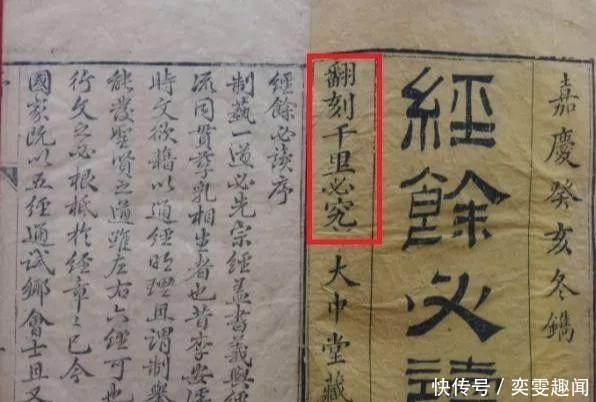 嘉慶癸亥冬鐫
經餘必讀
翻刻千里必究 大中堂藏
經餘必讀序
制蓺一道必先宗經蓋書義與經
流同貫孳乳相生者也昔李安溪
時文欲藉以通經明理且謂制舉
能發聖賢之道雖左右六經可也
行文之必根柢於經章〻已今
國家既以五經通試鄉會士且又
快传号 / 奕雯趣闻